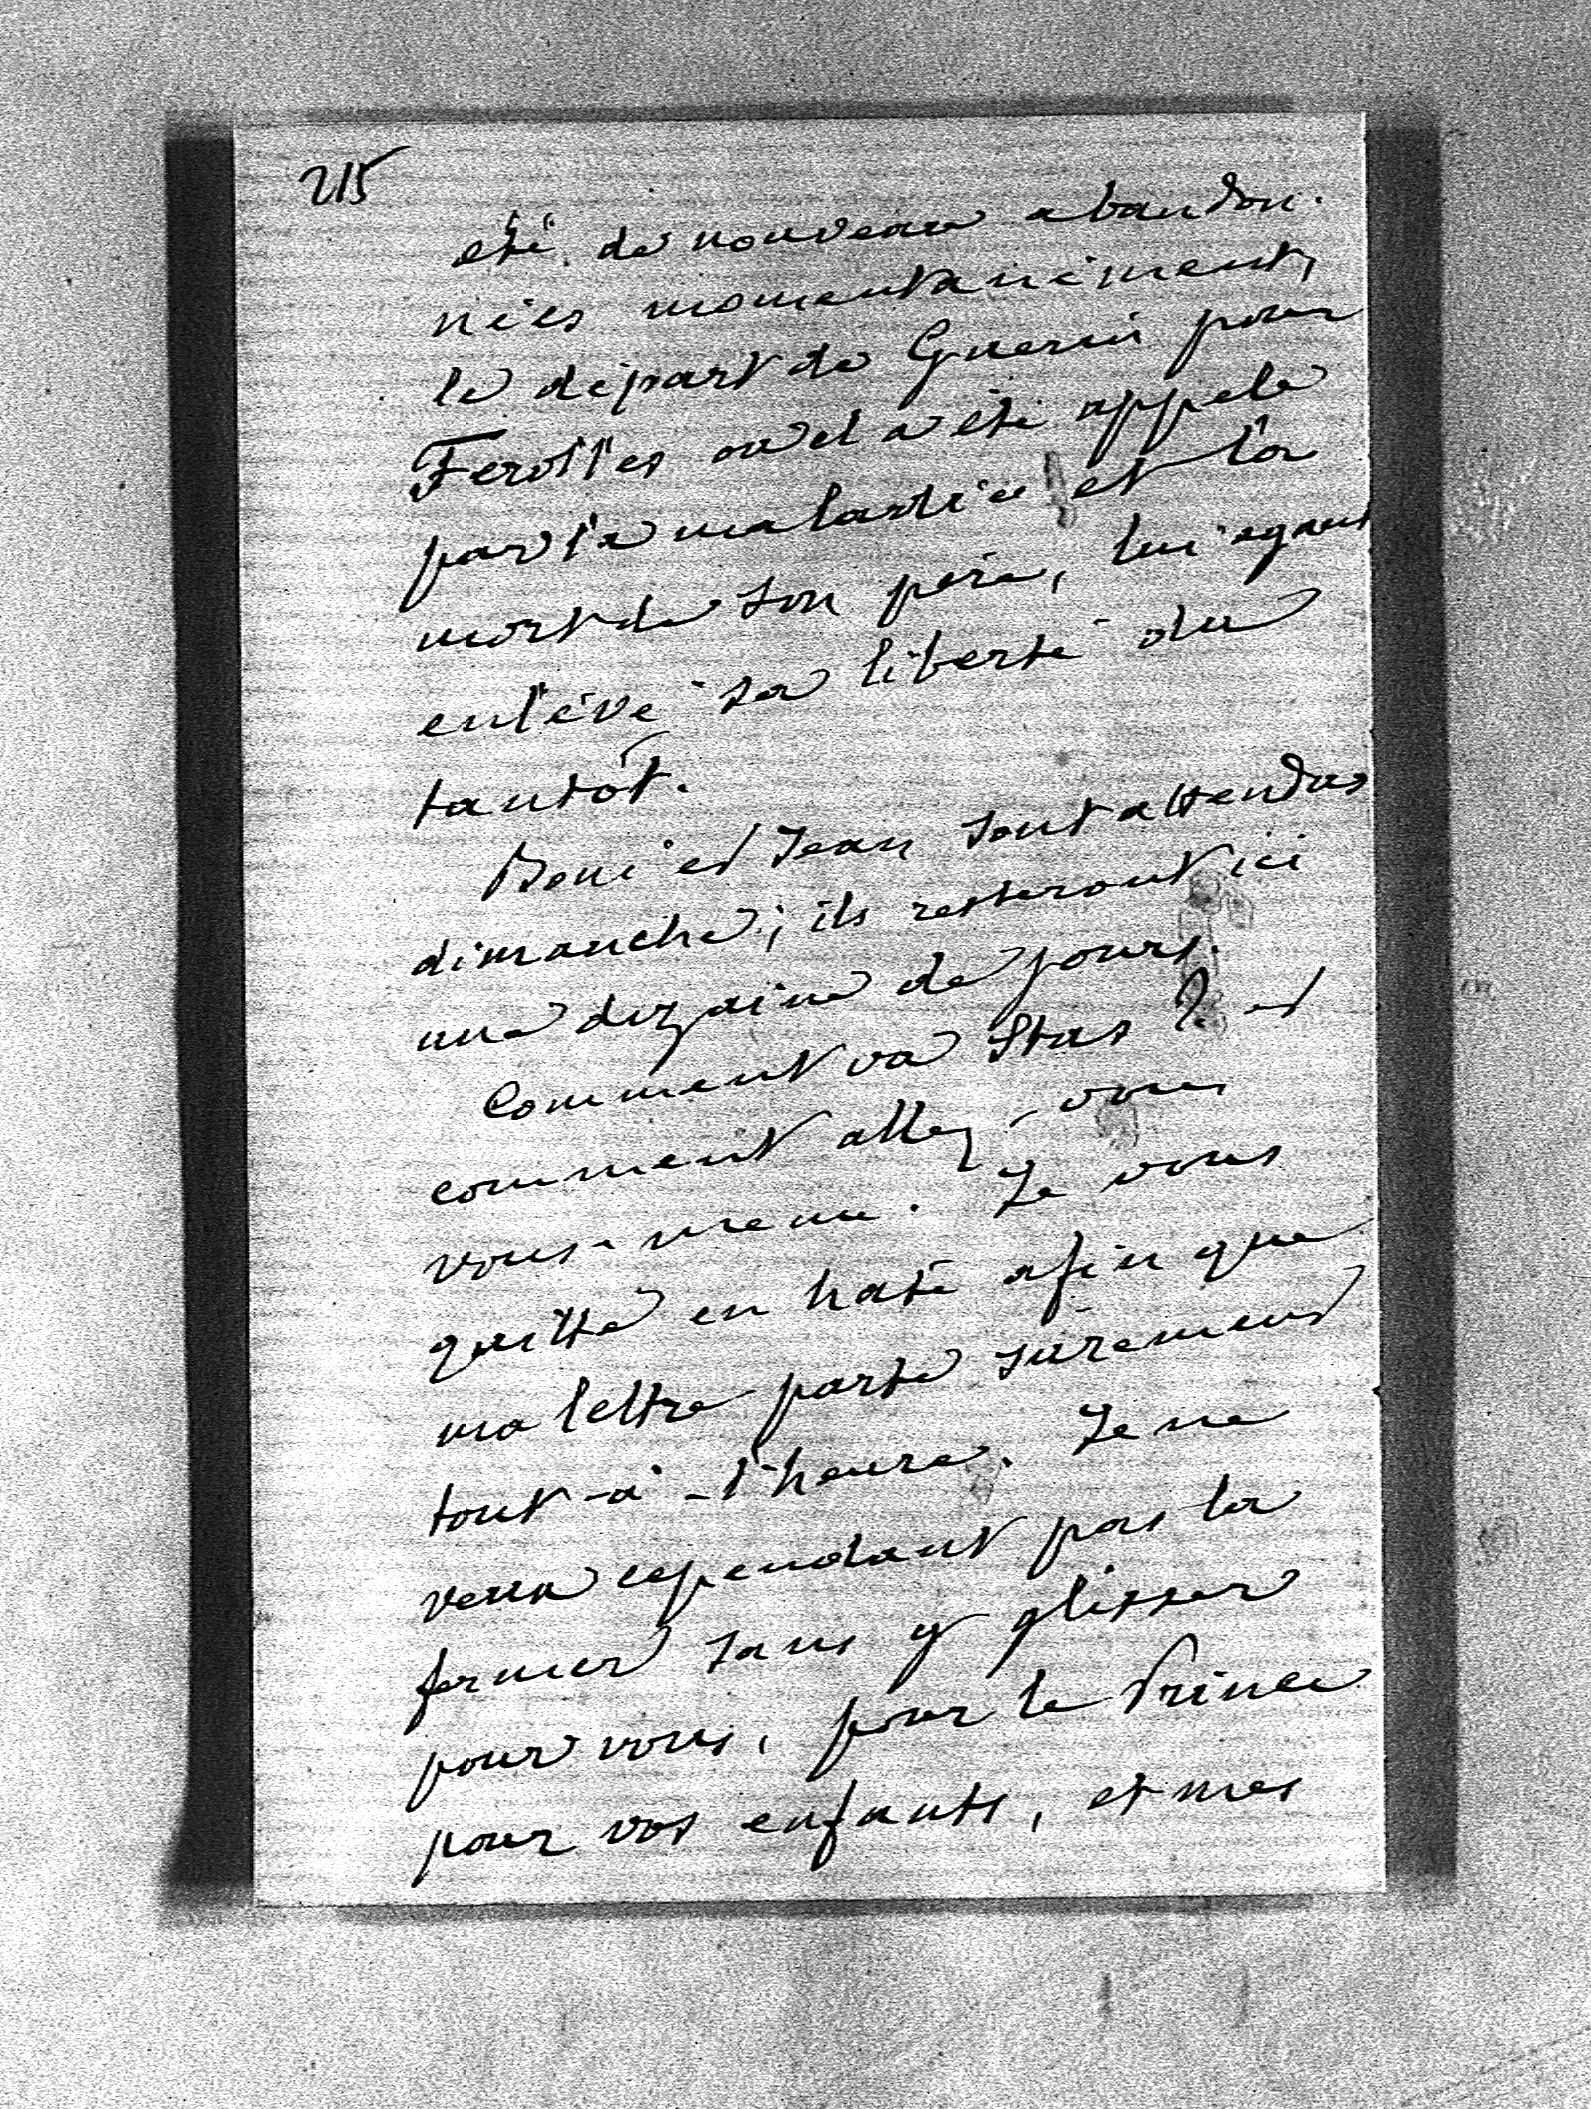 215
été de nouveau abandon-
nées momentanément,
le départ de Guerin pour
Ferolles où il a été appelé
par la maladie et la
mort de son père, lui ayant
enlevé sa liberté du
tantôt.
Boni et Jean sont attendus
dimanche; ils resteront ici
une dizaine de jours.
Comment va Stas? et
comment allez-vous
vous-meme. Je vous
quitte en hate afin que
ma lettre parte surement
tout-à-l'heure. Je ne
veux cependant pas la
fermer sans y glisser
pour vous, pour le Prince
pour vos enfants, et mes